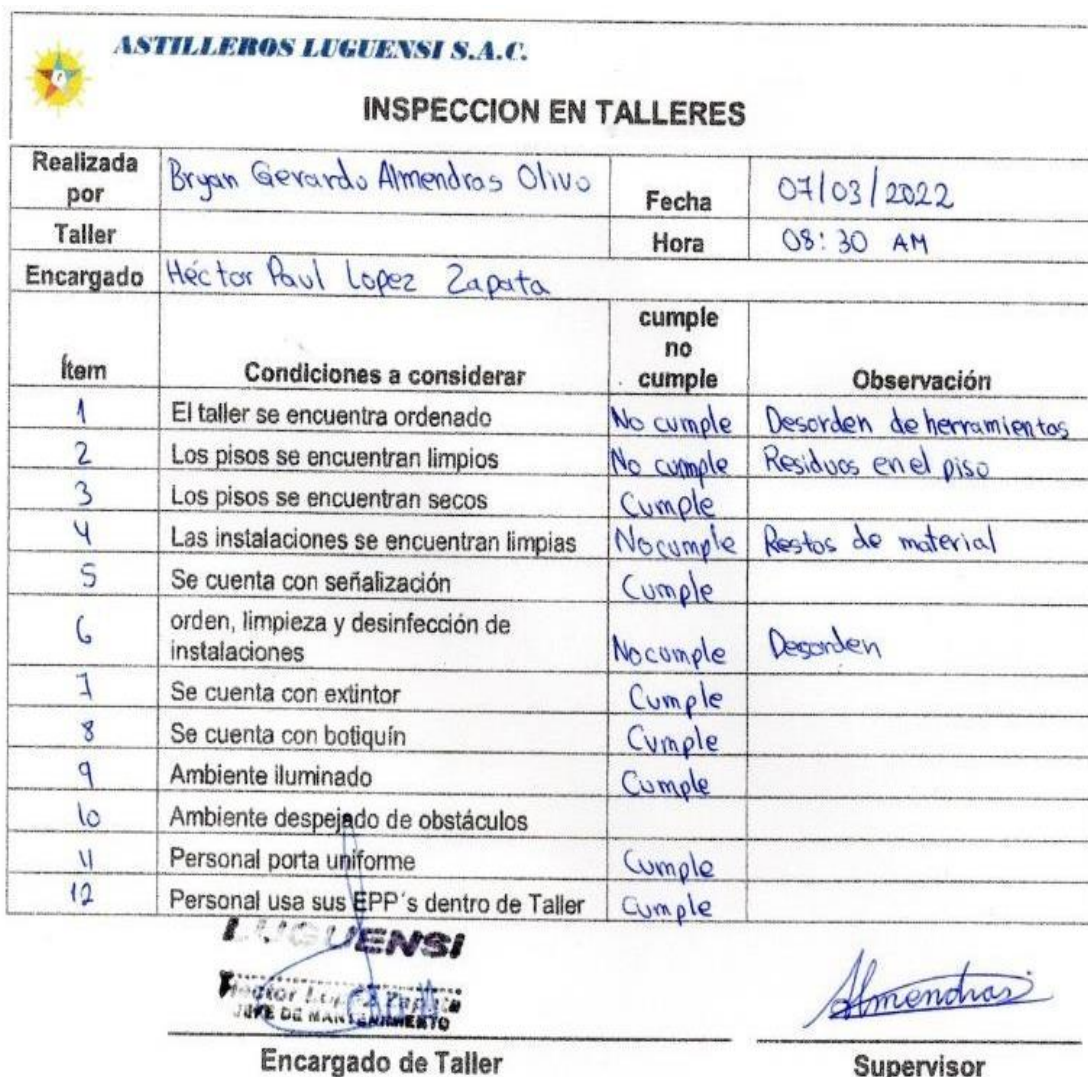 ASTILLEROS LUGUENSI S.A.C.
INSPECCION EN TALLERES
Realizada por Bryan Gerardo Almendras Olivo Fecha 07/03/2022
Taller Hora 08:30 AM
Encargado Héctor Paul Lopez Zapata
Ítem Condiciones a considerar cumple no cumple Observación
1 El taller se encuentra ordenado No cumple Desorden de herramientas
2 Los pisos se encuentran limpios No cumple Residuos en el piso
3 Los pisos se encuentran secos Cumple
4 Las instalaciones se encuentran limpias No cumple Restos de material
5 Se cuenta con señalización Cumple
6 orden, limpieza y desinfección de instalaciones No cumple Desorden
7 Se cuenta con extintor Cumple
8 Se cuenta con botiquín Cumple
9 Ambiente iluminado Cumple
10 Ambiente despejado de obstáculos
11 Personal porta uniforme Cumple
12 Personal usa sus EPP´s dentro de Taller Cumple
LUGUENSI
Hector Lopez Zapata
JEFE DE MANTENIMIENTO
Almendras
Encargado de Taller Supervisor